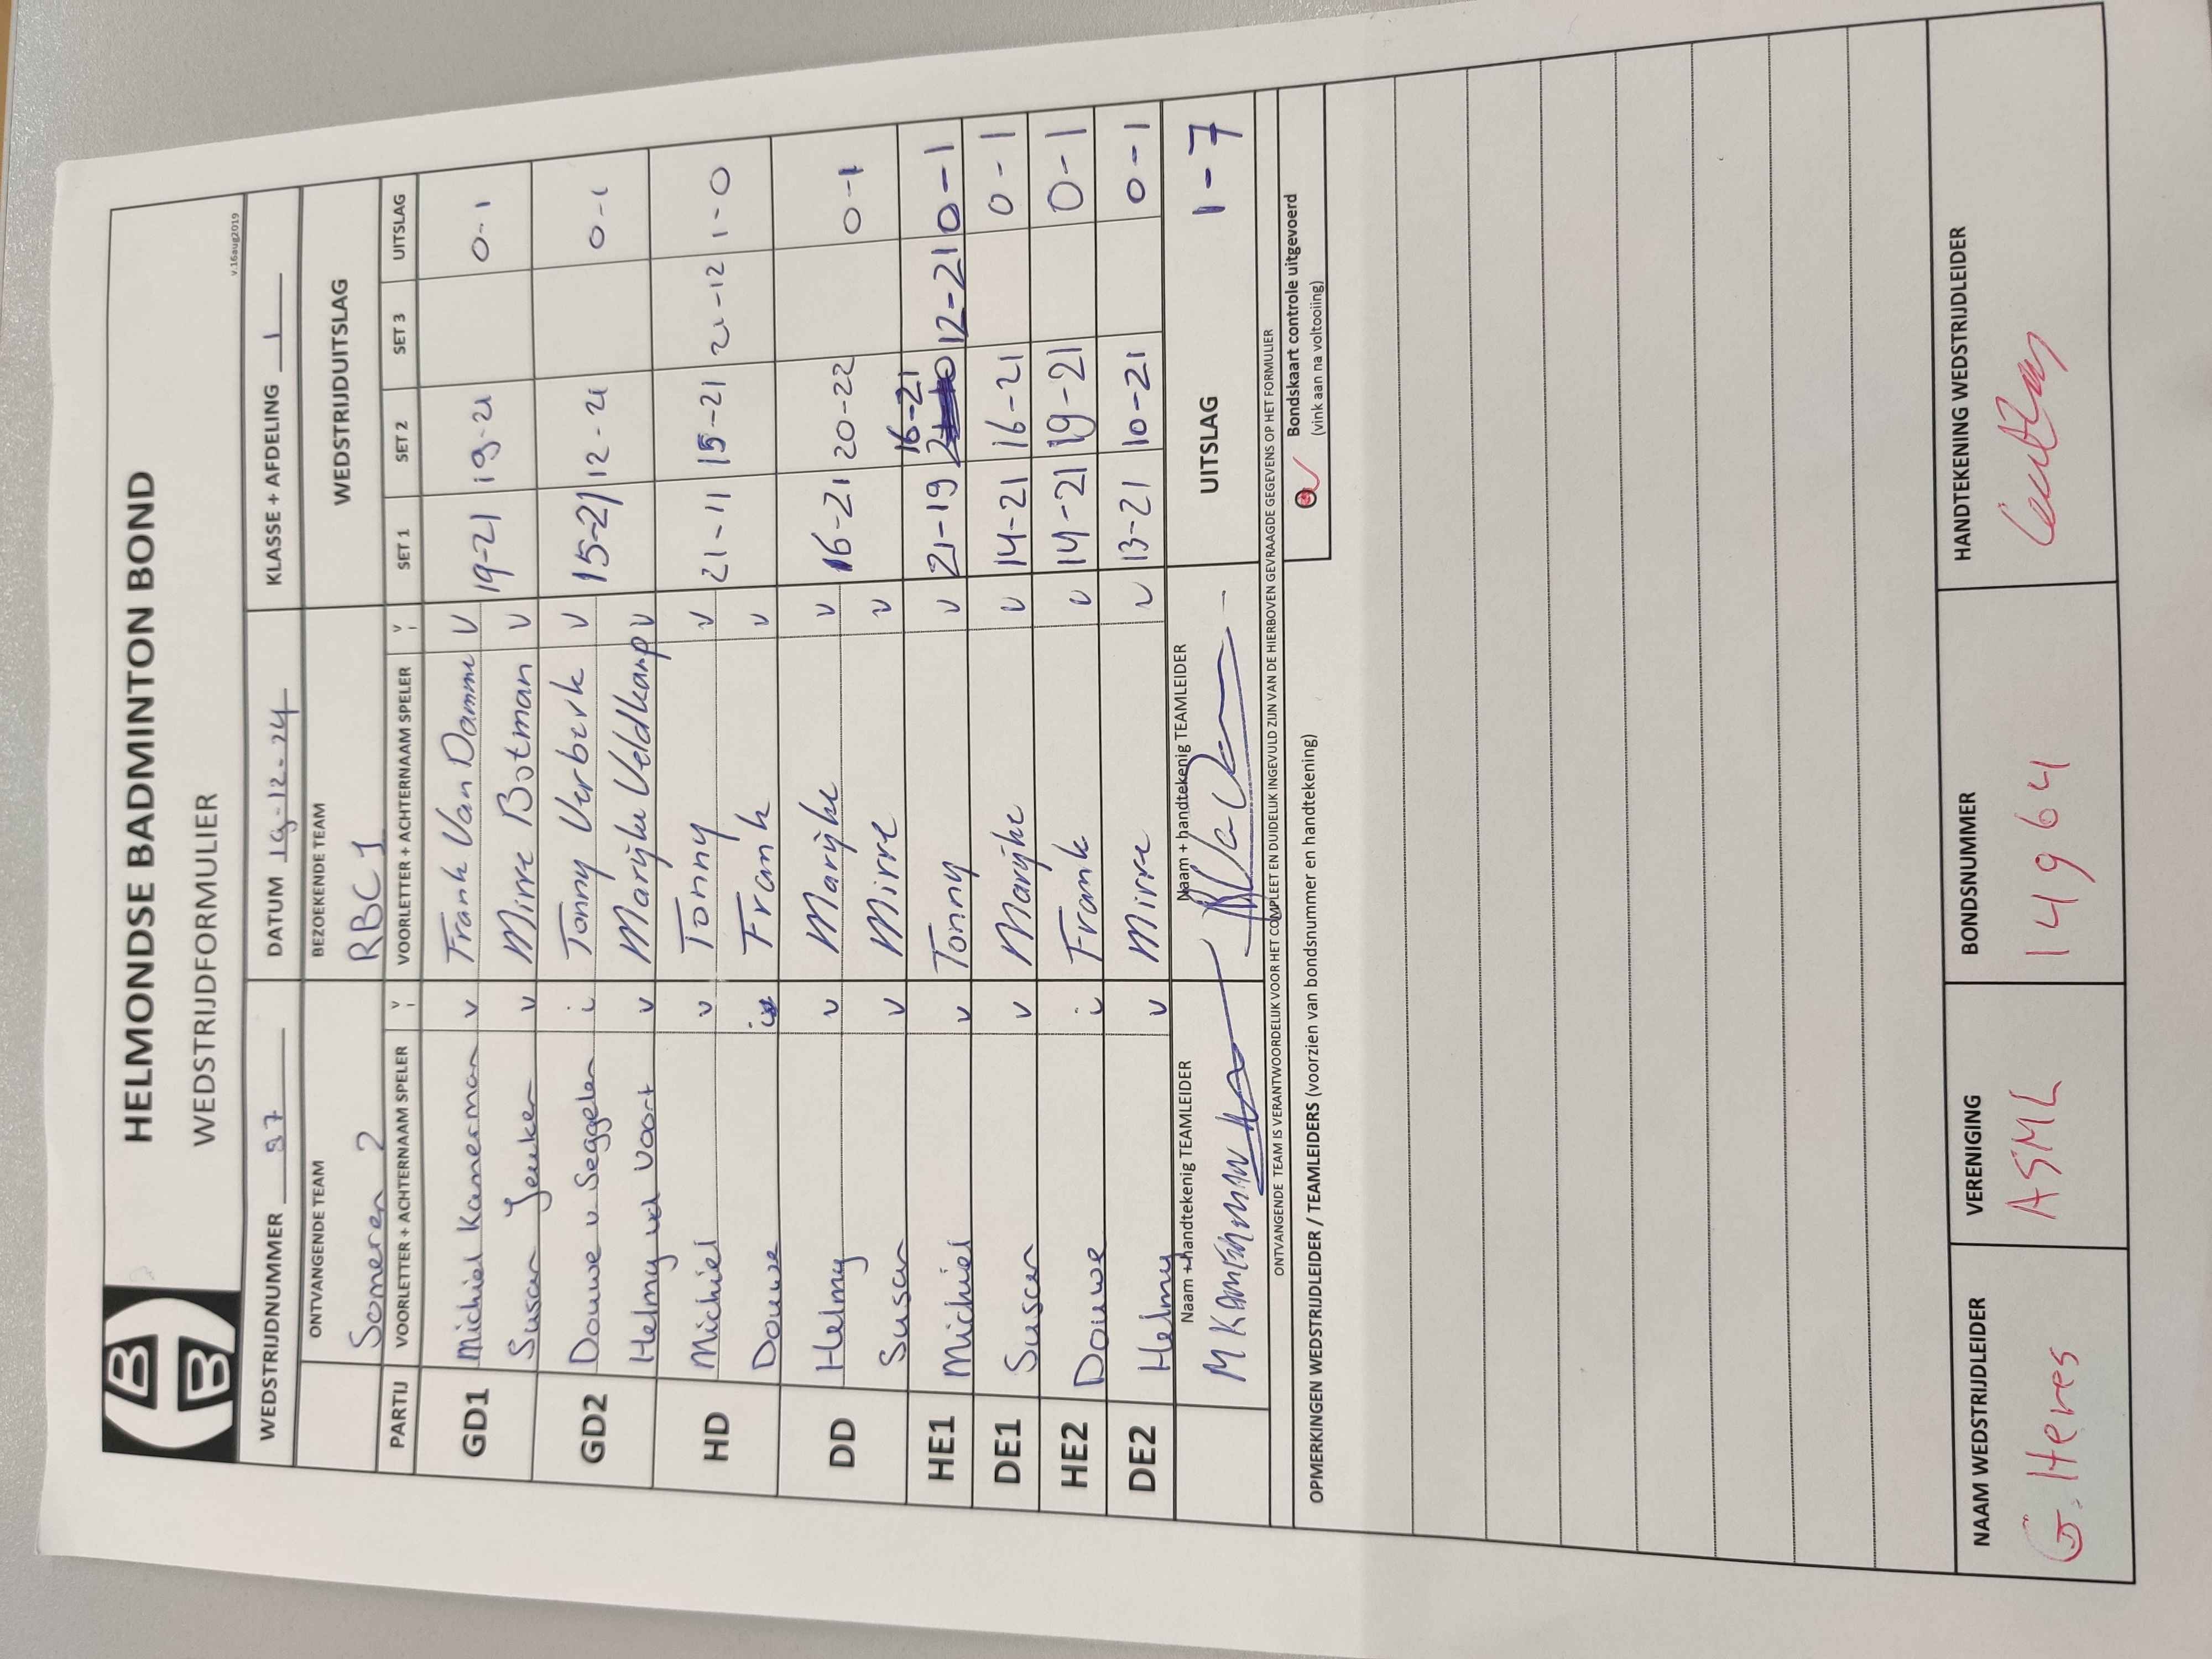 HELMONDSE BADMINTON BOND
WEDSTRIJDFORMULIER
v.16aug2019
WEDSTRIJDNUMMER 97 DATUM 19-12-24 KLASSE + AFDELING 1
ONTVANGENDE TEAM BEZOEKENDE TEAM WEDSTRIJDUITSLAG
Someren 2 RBC 1
PARTIJ VOORLETTER + ACHTERNAAM SPELER V/I VOORLETTER + ACHTERNAAM SPELER V/I SET 1 SET 2 SET 3 UITSLAG
GD1 Michiel Kamerman v Frank Van Damme V 19-21 19-21 0-1
Susan Jeuken v Mirre Botman V
GD2 Douwe v Seggelen i Tonny Verberk V 15-21 12-21 0-1
Helmy vd Voort v Marijke Veldkamp V
HD Michiel v Tonny v 21-11 15-21 21-12 1-0
Douwe i Frank v
DD Helmy v Marijke v 16-21 20-22 0-1
Susan v Mirre v
HE1 Michiel v Tonny v 21-19 16-21 12-21 0-1
DE1 Susan v Marijke v 14-21 16-21 0-1
HE2 Douwe i Frank v 14-21 19-21 0-1
DE2 Helmy v Mirre v 13-21 10-21 0-1
Naam + handtekenig TEAMLEIDER Naam + handtekenig TEAMLEIDER UITSLAG 1-7
M KAMERMAN
ONTVANGENDE TEAM IS VERANTWOORDELIJK VOOR HET COMPLEET EN DUIDELIJK INGEVULD ZIJN VAN DE HIERBOVEN GEVRAAGDE GEGEVENS OP HET FORMULIER
OPMERKINGEN WEDSTRIJDLEIDER / TEAMLEIDERS (voorzien van bondsnummer en handtekening)
Bondskaart controle uitgevoerd
(vink aan na voltooiing)
NAAM WEDSTRIJDLEIDER VERENIGING BONDSNUMMER HANDTEKENING WEDSTRIJDLEIDER
G. Heres ASML 14964